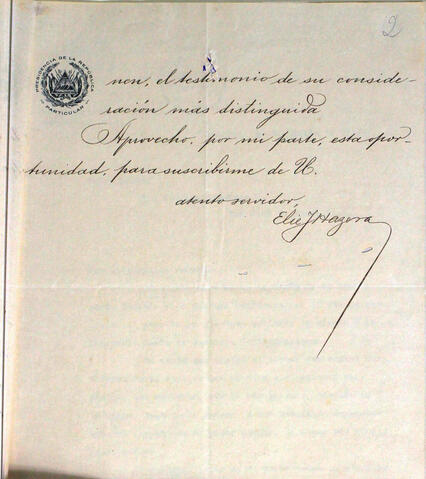 2
PRESIDENCIA DE LA REPUBLICA
PARTICULAR
nen, el testimonio de su conside-
ración más distinguida
Aprovecho, por mi parte, esta opor-
tunidad, para suscribirme de U.
atento servidor,